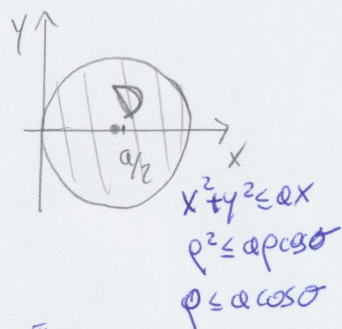 y
D
a/2
x
x²+y²≤ax
ρ²≤aρcosθ
ρ≤a cosθ